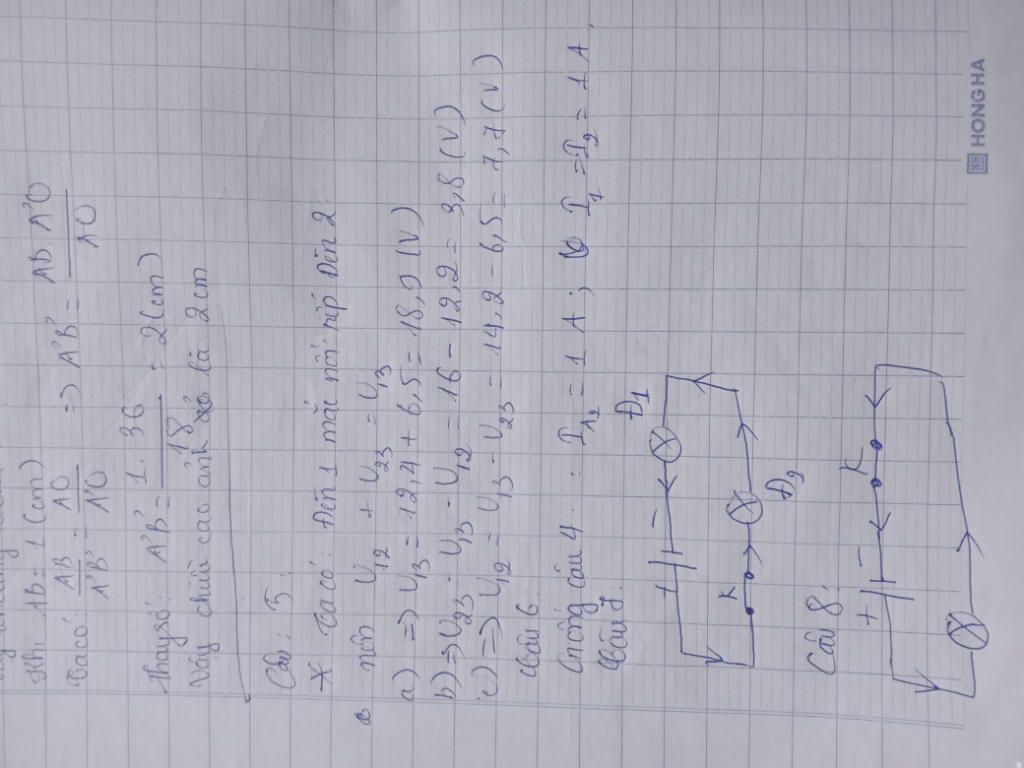 Khi AB = 1 (cm)
Ta có: AB/A'B' = AO/A'O => A'B' = AB.A'O/AO
Thay số: A'B' = 1.36/18 = 2 (cm)
Vậy chiều cao ảnh là 2cm
Câu 5:
* Ta có: Đèn 1 mắc nối tiếp Đèn 2.
nên U12 + U23 = U13
a) => U13 = 12,4 + 6,5 = 18,9 (V)
b) => U23 = U13 - U12 = 16 - 12,2 = 3,8 (V)
c) => U12 = U13 - U23 = 14,2 - 6,5 = 7,7 (V)
Câu 6:
Giống câu 4: = 1 A; I1 = I2 = 1 A.
+ - Đ1
K Đ2
Câu 8:
+ - K
HONG HA